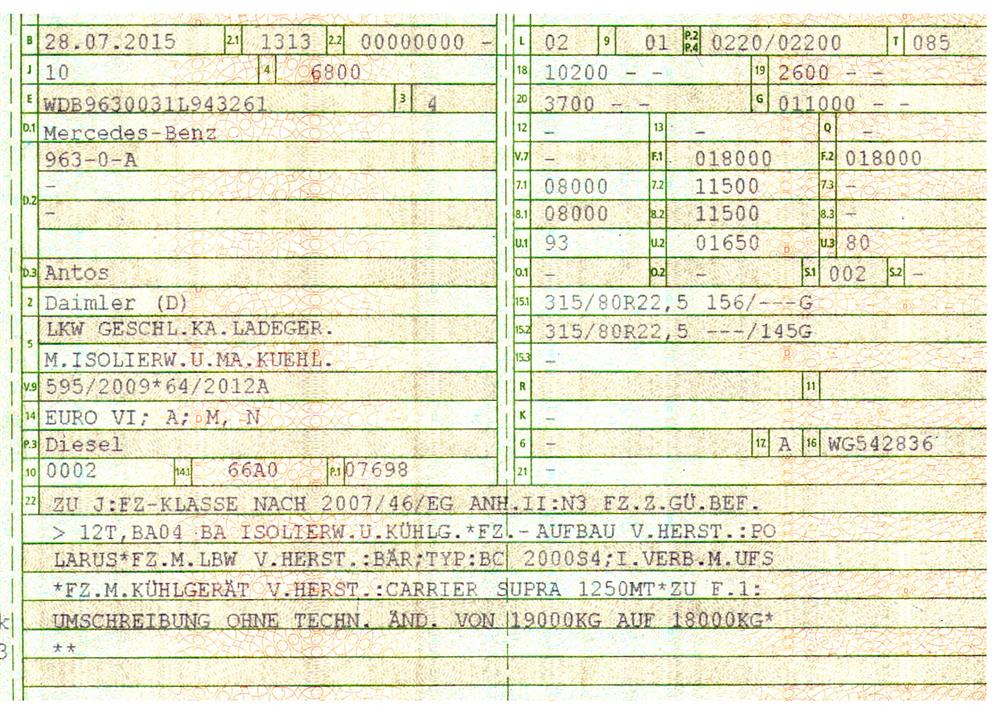 B 28.07.2015 2.1 1313 2.2 00000000 - L 02 9 01 P.2 P.4 0220/02200 T 085
J 10 4 6800 18 10200 - - 19 2600 - -
E WDB9630031L943261 3 4 20 3700 - - G 011000 - -
D.1 Mercedes-Benz 12 - 13 - Q -
963-0-A V.7 - F.1 018000 F.2 018000
D.2 - 7.1 08000 7.2 11500 7.3 -
- 8.1 08000 8.2 11500 8.3 -
U.1 93 U.2 01650 U.3 80
D.3 Antos O.1 - O.2 - S.1 002 S.2 -
2 Daimler (D) 15.1 315/80R22,5 156/---G
5 LKW GESCHL.KA.LADEGER. 15.2 315/80R22,5 ---/145G
M.ISOLIERW.U.MA.KUEHL. 15.3 -
V.9 595/2009*64/2012A R 11
14 EURO VI; A; M, N K -
P.3 Diesel 6 - 17 A 16 WG542836
10 0002 14.1 66A0 P.1 07698 21 -
22 ZU J:FZ-KLASSE NACH 2007/46/EG ANH.II:N3 FZ.Z.GÜ.BEF.
> 12T,BA04 BA ISOLIERW.U.KÜHLG.*FZ.-AUFBAU V.HERST.:PO
LARUS*FZ.M.LBW V.HERST.:BÄR;TYP:BC 2000S4;I.VERB.M.UFS
*FZ.M.KÜHLGERÄT V.HERST.:CARRIER SUPRA 1250MT*ZU F.1:
k UMSCHREIBUNG OHNE TECHN. ÄND. VON 19000KG AUF 18000KG*
3 **